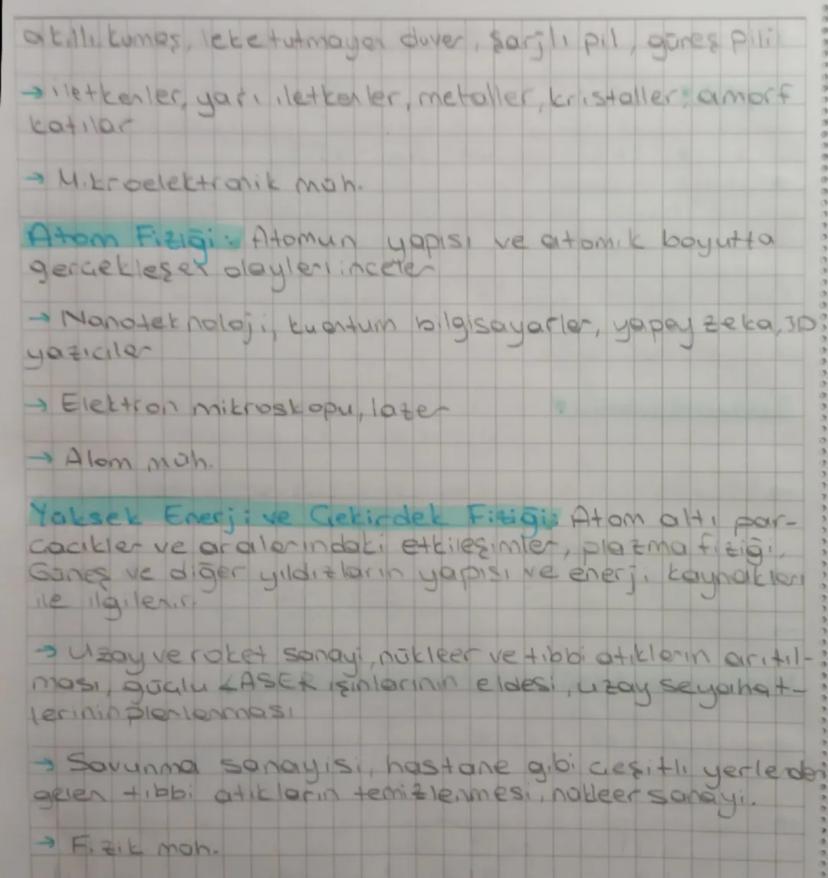 akıllı kumaş, leke tutmayan duvar, şarjlı pil, güneş pili
→ iletkenler, yarı iletkenler, metaller, kristaller, amorf
katılar
→ Mikroelektronik müh.
Atom Fiziği: Atomun yapısı ve atomik boyutta
gerçekleşen olayları inceler
→ Nanoteknoloji, kuantum bilgisayarlar, yapay zeka, 3D
yazıcılar
→ Elektron mikroskopu, lazer
→ Atom müh.
Yüksek Enerji ve Çekirdek Fiziği: Atom altı par-
çacıklar ve aralarındaki etkileşimler, plazma fiziği,
Güneş ve diğer yıldızların yapısı ve enerji kaynakları
ile ilgilenir.
→ Uzay ve roket sanayi, nükleer ve tıbbi atıkların arıtıl-
ması, güçlü LASER ışınlarının eldesi, uzay seyahat-
lerinin planlanması
→ Savunma sanayisi, hastane gibi çeşitli yerlerden
gelen tıbbi atıkların temizlenmesi, nükleer sanayi.
→ Fizik müh.